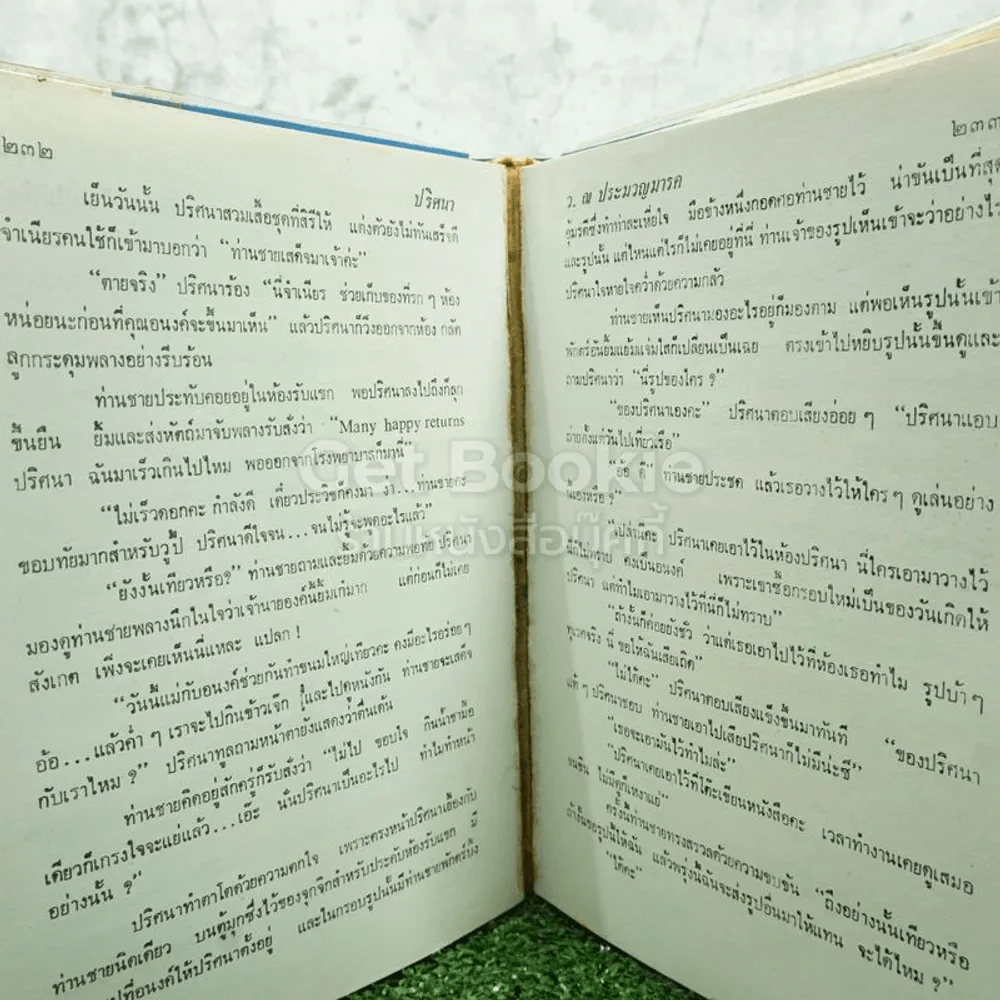 ๒๓๒
ปริศนา
เย็นวันนั้น ปริศนาสวมเสื้อชุดที่สิรีให้ แต่งตัวยังไม่ทันเสร็จดี
จำเนียรคนใช้ก็เข้ามาบอกว่า “ท่านชายเสด็จมาเจ้าค่ะ”
“ตายจริง” ปริศนาร้อง “นี่จำเนียร ช่วยเก็บของที่รก ๆ ห้อง
หน่อยนะก่อนที่คุณอนงค์จะขึ้นมาเห็น” แล้วปริศนาก็วิ่งออกจากห้อง กลัด
ลูกกระดุมพลางอย่างรีบร้อน
ท่านชายประทับคอยอยู่ในห้องรับแขก พอปริศนาลงไปถึงก็ลุก
ขึ้นยืน ยิ้มและส่งหัตถ์มาจับพลางรับสั่งว่า “Many happy returns
ปริศนา ฉันมาเร็วเกินไปไหม พอออกจากโรงพยาบาลก็มานี่”
“ไม่เร็วดอกคะ กำลังดี เดี๋ยวประวิชก็คงมา งา...ท่านชายคะ
ขอบทัยมากสำหรับวูปี้ ปริศนาดีใจจน...จนไม่รู้จะพูดอะไรแล้ว”
“ยังงั้นเทียวหรือ?” ท่านชายถามและยิ้มด้วยความพอทัย ปริศนา
มองดูท่านชายพลางนึกในใจว่าเจ้านายองค์นี้ยิ้มเก๋มาก แต่ก่อนก็ไม่เคย
สังเกต เพิ่งจะเคยเห็นนี่แหละ แปลก !
“วันนี้แม่กับอนงค์ช่วยกันทำขนมใหญ่เทียวคะ คงมีอะไรอร่อย ๆ
อ้อ...แล้วค่ำ ๆ เราจะไปกินข้าวเจ๊ก และไปดูหนังกัน ท่านชายจะเสด็จ
กับเราไหม ?” ปริศนาทูลถามหน้าตายังแสดงว่าตื่นเต้น
ท่านชายคิดอยู่สักครู่ก็รับสั่งว่า “ไม่ไป ขอบใจ กินน้ำชามื้อ
เดียวก็เกรงใจจะแย่แล้ว...เอ๊ะ นั่นปริศนาเป็นอะไรไป ทำไมทำหน้า
อย่างนั้น ?”
ปริศนาทำตาโตด้วยความตกใจ เพราะตรงหน้าปริศนาเยื้องกับ
ท่านชายนิดเดียว บนตู้มุกซึ่งไว้ของจุกจิกสำหรับประดับห้องรับแขก มี
รูปที่อนงค์ให้ปริศนาตั้งอยู่ และในกรอบรูปนั้นมีท่านชายพักตร์บึ้ง
๒๓๓
ว. ณ ประมวญมารค
อุ้มรตีซึ่งทำท่าละเหี่ยใจ มือข้างหนึ่งกอดศอท่านชายไว้ น่าขันเป็นที่สุด
และรูปนั้น แต่ไหนแต่ไรก็ไม่เคยอยู่ที่นี่ ท่านเจ้าของรูปเห็นเข้าจะว่าอย่างไร
ปริศนาใจหายใจคว่ำด้วยความกลัว
ท่านชายเห็นปริศนามองอะไรอยู่ก็มองตาม แต่พอเห็นรูปนั้นเข้า
พักตร์อันยิ้มแย้มแจ่มใสก็เปลี่ยนเป็นเฉย ตรงเข้าไปหยิบรูปนั้นขึ้นดูและ
ถามปริศนาว่า “นี่รูปของใคร ?”
“ของปริศนาเองคะ” ปริศนาตอบเสียงอ่อย ๆ “ปริศนาแอบ
ถ่ายตั้งแต่วันไปเที่ยวเรือ”
“อ้อ ดี” ท่านชายประชด แล้วเธอวางไว้ให้ใคร ๆ ดูเล่นอย่าง
นี้เองหรือ ?”
“เปล่านี่คะ ปริศนาเคยเอาไว้ในห้องปริศนา นี่ใครเอามาวางไว้
นี่ก็ไม่ทราบ คงเป็นอนงค์ เพราะเขาซื้อกรอบใหม่เป็นของวันเกิดให้
ปริศนา แต่ทำไมเอามาวางไว้ที่นี่ก็ไม่ทราบ”
“ถ้างั้นก็ค่อยยังชั่ว ว่าแต่เธอเอาไปไว้ที่ห้องเธอทำไม รูปบ้า ๆ
ทุเรศจริง นี่ ขอให้ฉันเสียเถิด”
“ไม่ได้คะ” ปริศนาตอบเสียงแข็งขึ้นมาทันที “ของปริศนา
แท้ ๆ ปริศนาชอบ ท่านชายเอาไปเสียปริศนาก็ไม่มีน่ะซี”
“เธอจะเอามันไว้ทำไมล่ะ”
“ปริศนาเคยเอาไว้ที่โต๊ะเขียนหนังสือคะ เวลาทำงานเคยดูเสมอ
จนชิน ไม่มีดูก็เหงาแย่”
ครั้งนี้ท่านชายทรงสรวลด้วยความขบขัน “ถึงอย่างนั้นเทียวหรือ
ถ้างั้นขอรูปนี้ให้ฉัน แล้วพรุ่งนี้ฉันจะส่งรูปอื่นมาให้แทน จะได้ไหม ?”
“ได้คะ”
Get Bookie
ร้านหนังสือบุ๊คกี้